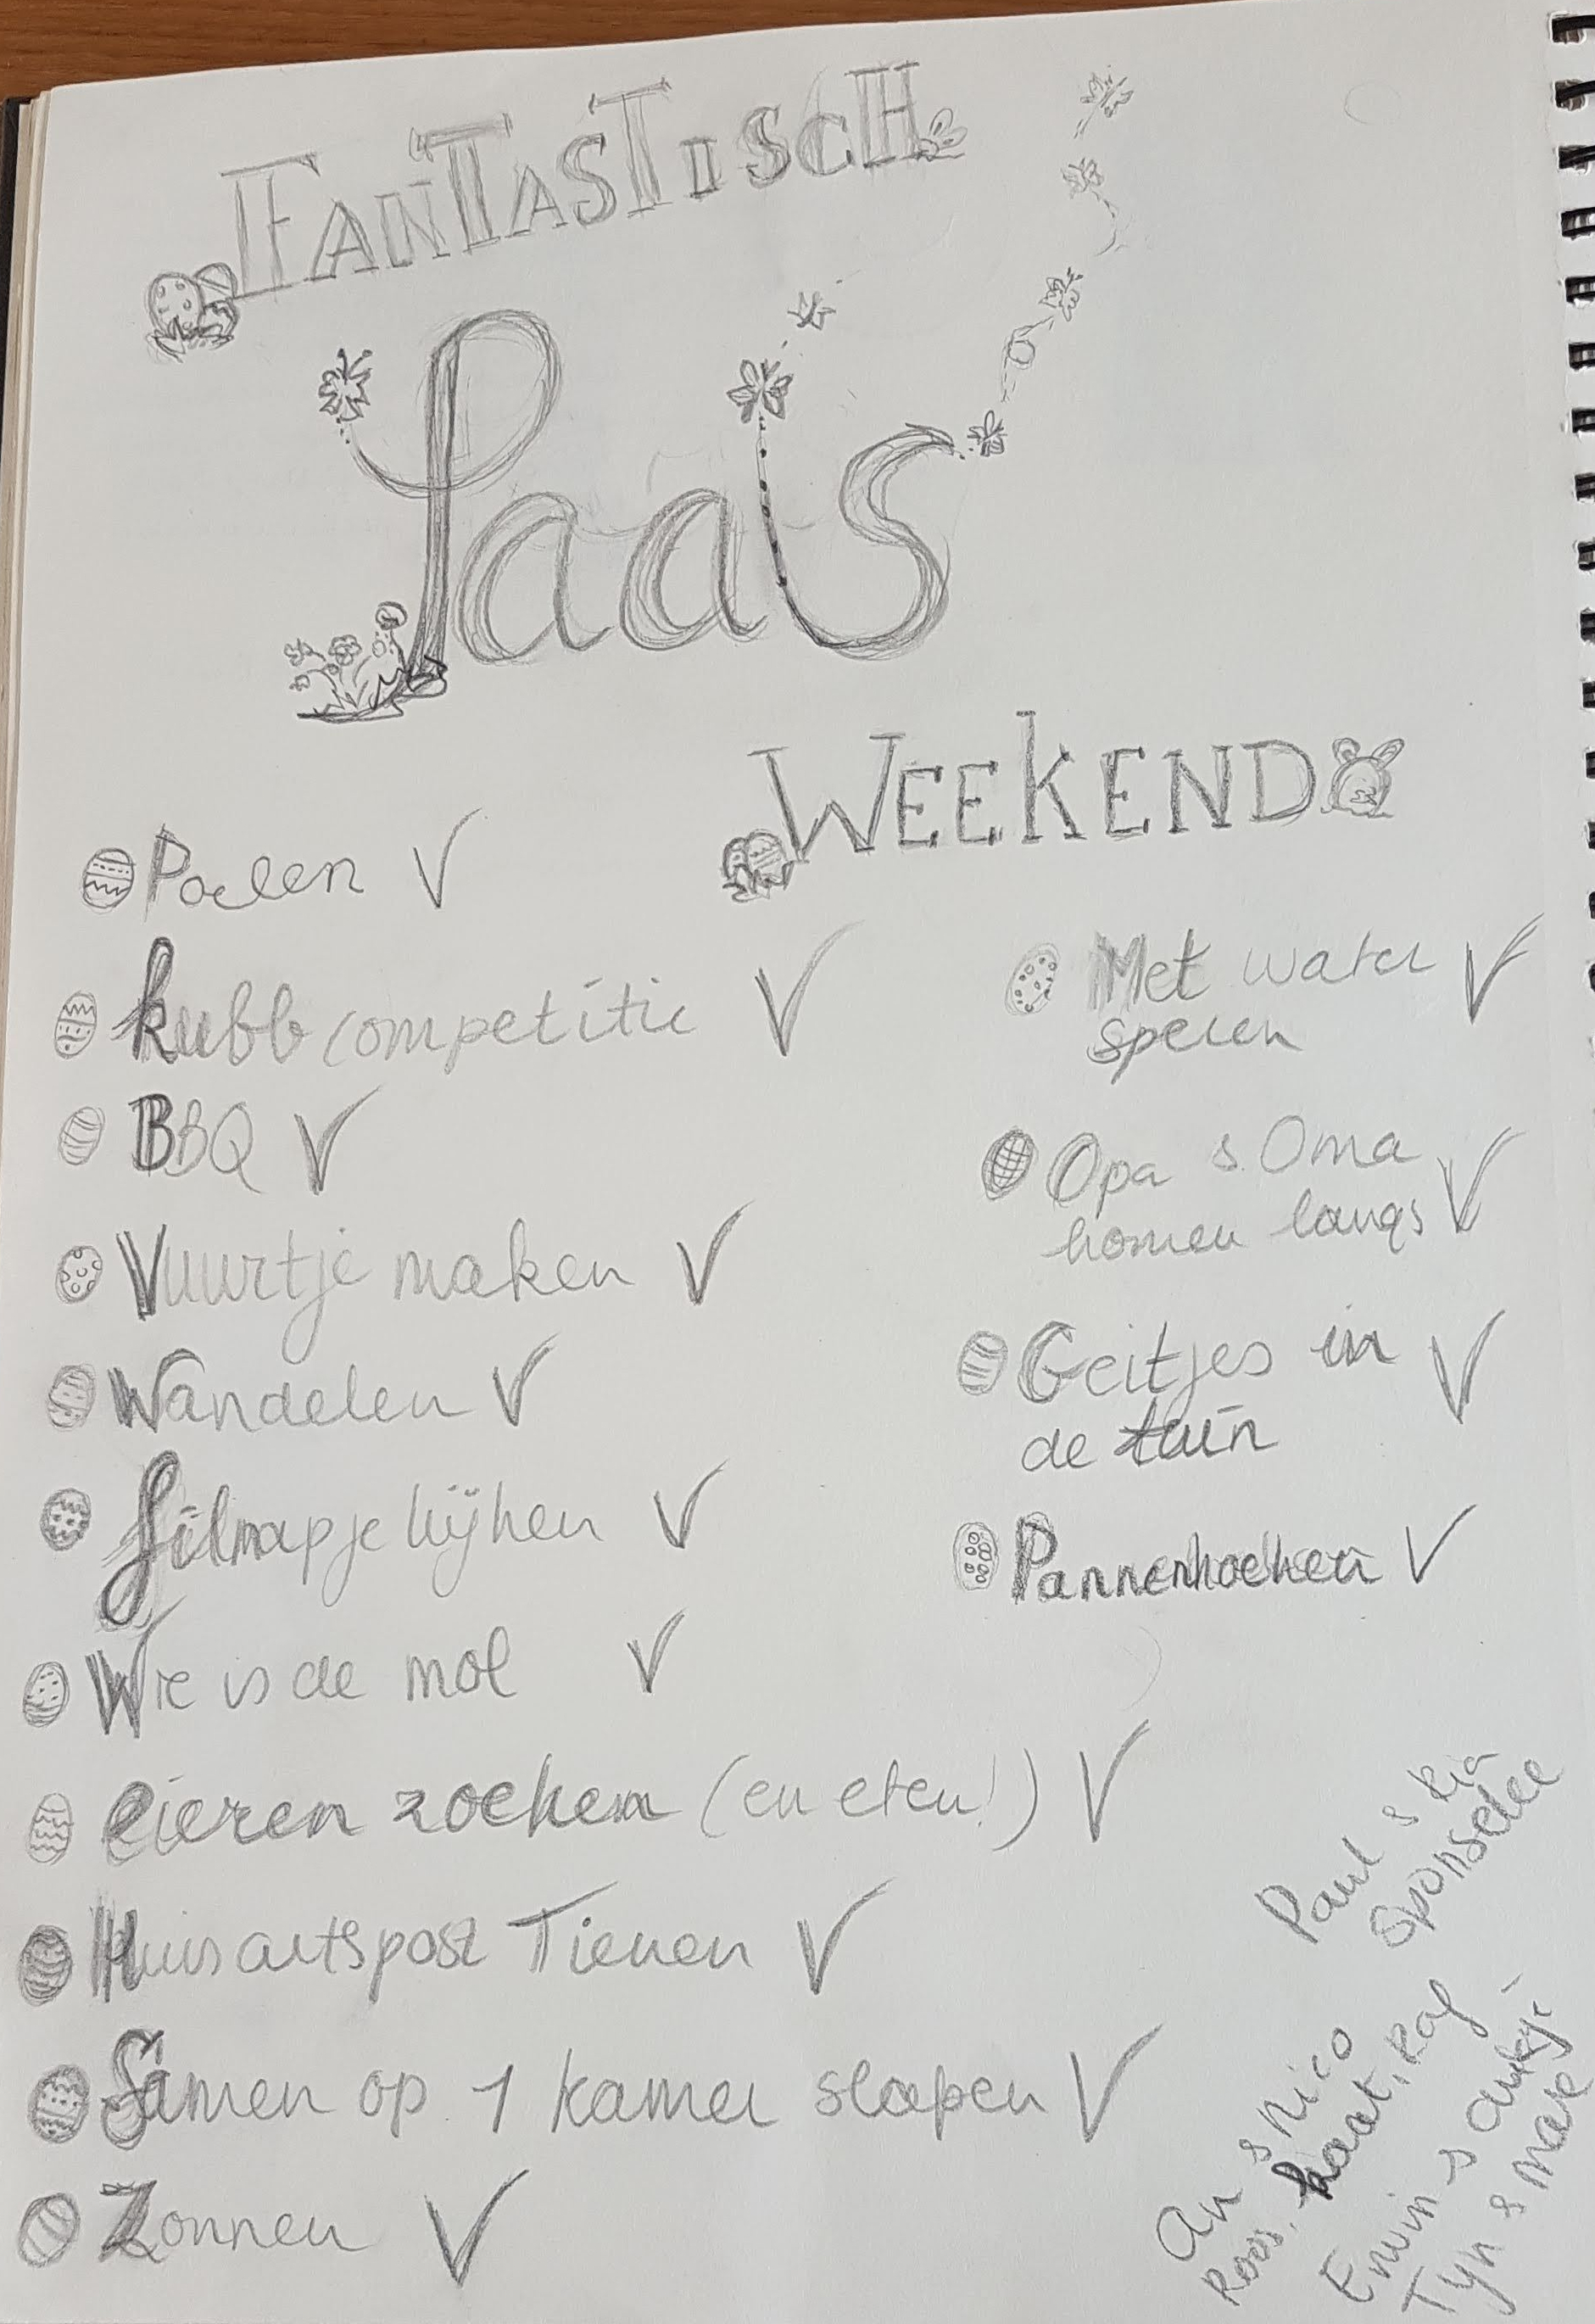 FANTASTISCH
Paas
WEEKEND
Poelen V
kubb competitie V
BBQ V
Vuurtje maken V
Wandelen V
filmapje kijken V
Wie is de mol V
eieren zoeken (en eten!) V
Huisartspost Tienen V
Samen op 1 kamer slapen V
Zonnen V
Met water V
spelen
Opa & Oma
komen langs V
Geitjes in V
de tuin
Pannenkoeken V
Paul & Ria
Sponselee
An & Nico
Roos, kaat, Raf
Erwin &
Tijn & Mare